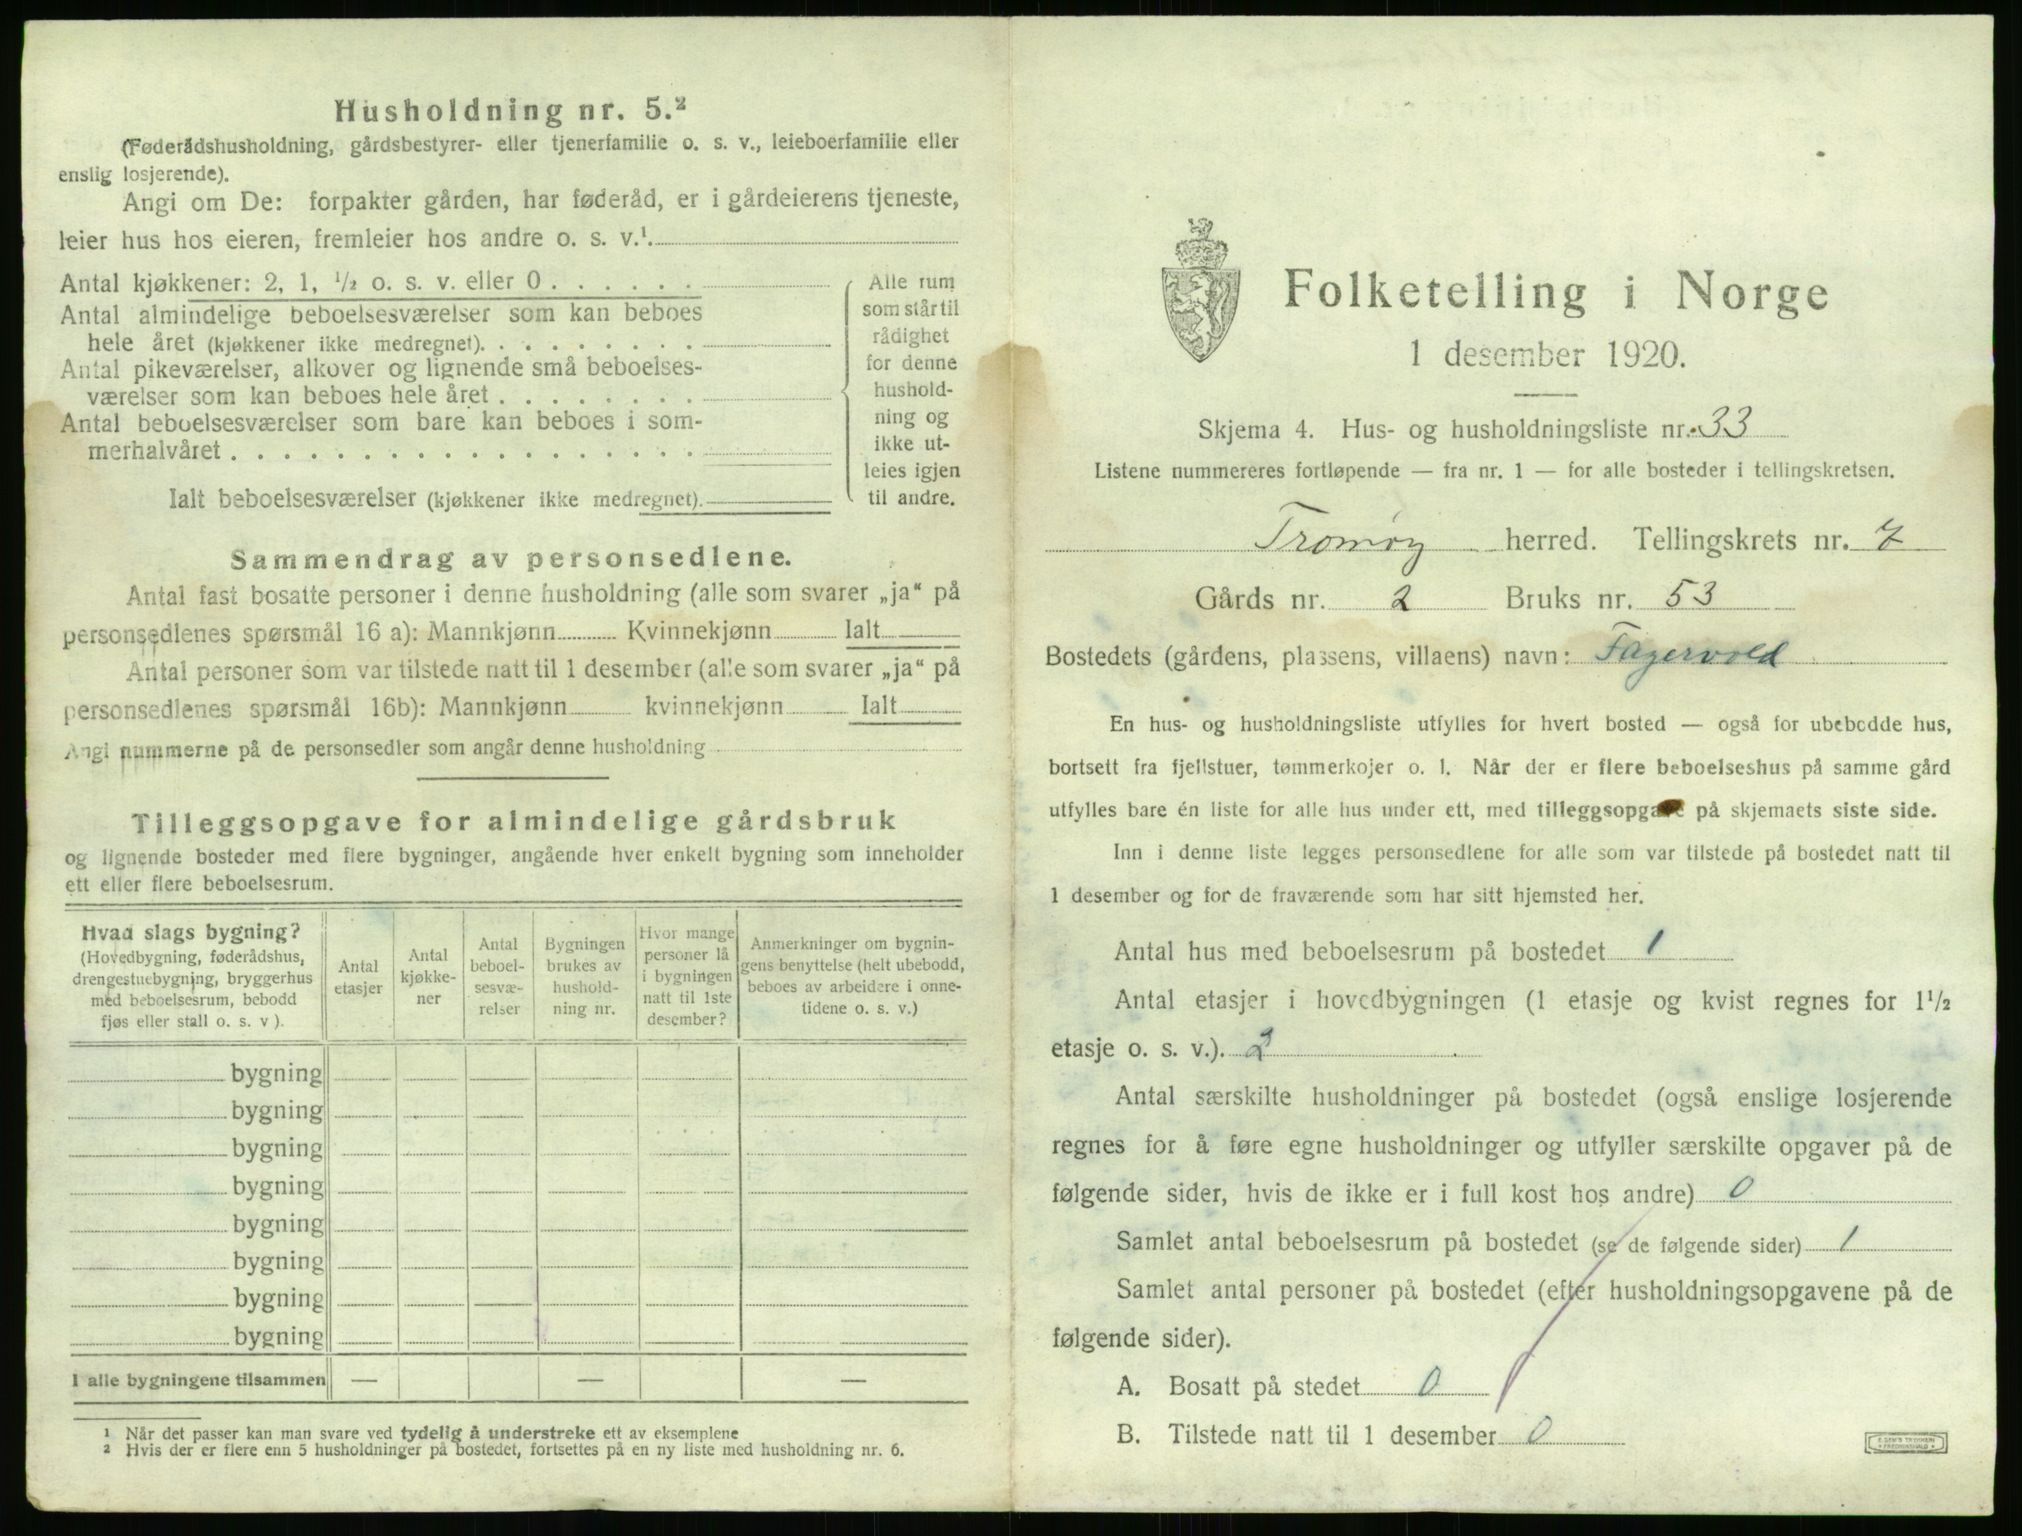 Husholdning nr. 5.²
(Føderådshusholdning, gårdsbestyrer- eller tjenerfamilie o. s. v., leieboerfamilie eller
enslig losjerende).
Angi om De: forpakter gården, har føderåd, er i gårdeierens tjeneste,
leier hus hos eieren, fremleier hos andre o. s. v.¹
Antal kjøkkener: 2, 1, ½ o. s. v. eller 0
Antal almindelige beboelsesværelser som kan beboes
hele året (kjøkkener ikke medregnet).
Antal pikeværelser, alkover og lignende små beboelses-
værelser som kan beboes hele året
Antal beboelsesværelser som bare kan beboes i som-
merhalvåret
Ialt beboelsesværelser (kjøkkener ikke medregnet).
Alle rum
som står til
rådighet
for denne
hushold-
ning og
ikke ut-
leies igjen
til andre.
Sammendrag av personsedlene.
Antal fast bosatte personer i denne husholdning (alle som svarer „ja“ på
personsedlenes spørsmål 16 a): Mannkjønn Kvinnekjønn Ialt
Antal personer som var tilstede natt til 1 desember (alle som svarer „ja“ på
personsedlenes spørsmål 16b): Mannkjønn kvinnekjønn Ialt
Angi nummerne på de personsedler som angår denne husholdning
Tilleggsopgave for almindelige gårdsbruk
og lignende bosteder med flere bygninger, angående hver enkelt bygning som inneholder
ett eller flere beboelsesrum.
Hvad slags bygning?
(Hovedbygning, føderådshus,
drengestuebygning, bryggerhus
med beboelsesrum, bebodd
fjøs eller stall o. s. v ).
Antal
etasjer
Antal
kjøkke-
ner
Antal
beboel-
sesvæ-
relser
Bygningen
brukes av
hushold-
ning nr.
Hvor mange
personer lå
i bygningen
natt til 1ste
desember?
Anmerkninger om bygnin-
gens benyttelse (helt ubebodd,
beboes av arbeidere i onne-
tidene o. s. v.)
bygning
bygning
bygning
bygning
bygning
bygning
bygning
bygning
I alle bygningene tilsammen — — —
¹ Når det passer kan man svare ved tydelig å understreke ett av eksemplene
² Hvis der er flere enn 5 husholdninger på bostedet, fortsettes på en ny liste med husholdning nr. 6.
Folketelling i Norge
1 desember 1920.
Skjema 4. Hus- og husholdningsliste nr. 33
Listene nummereres fortløpende — fra nr. 1 — for alle bosteder i tellingskretsen.
Tromøy herred. Tellingskrets nr. 7
Gårds nr. 2 Bruks nr. 53
Bostedets (gårdens, plassens, villaens) navn: Fagervold
En hus- og husholdningsliste utfylles for hvert bosted — også for ubebodde hus,
bortsett fra fjellstuer, tømmerkojer o. l. Når der er flere beboelseshus på samme gård
utfylles bare én liste for alle hus under ett, med tilleggsopgave på skjemaets siste side.
Inn i denne liste legges personsedlene for alle som var tilstede på bostedet natt til
1 desember og for de fraværende som har sitt hjemsted her.
Antal hus med beboelsesrum på bostedet 1
Antal etasjer i hovedbygningen (1 etasje og kvist regnes for 1½
etasje o. s. v.). 2
Antal særskilte husholdninger på bostedet (også enslige losjerende
regnes for å føre egne husholdninger og utfyller særskilte opgaver på de
følgende sider, hvis de ikke er i full kost hos andre) 0
Samlet antal beboelsesrum på bostedet (se de følgende sider) 1
Samlet antal personer på bostedet (efter husholdningsopgavene på de
følgende sider).
A. Bosatt på stedet 0
B. Tilstede natt til 1 desember 0